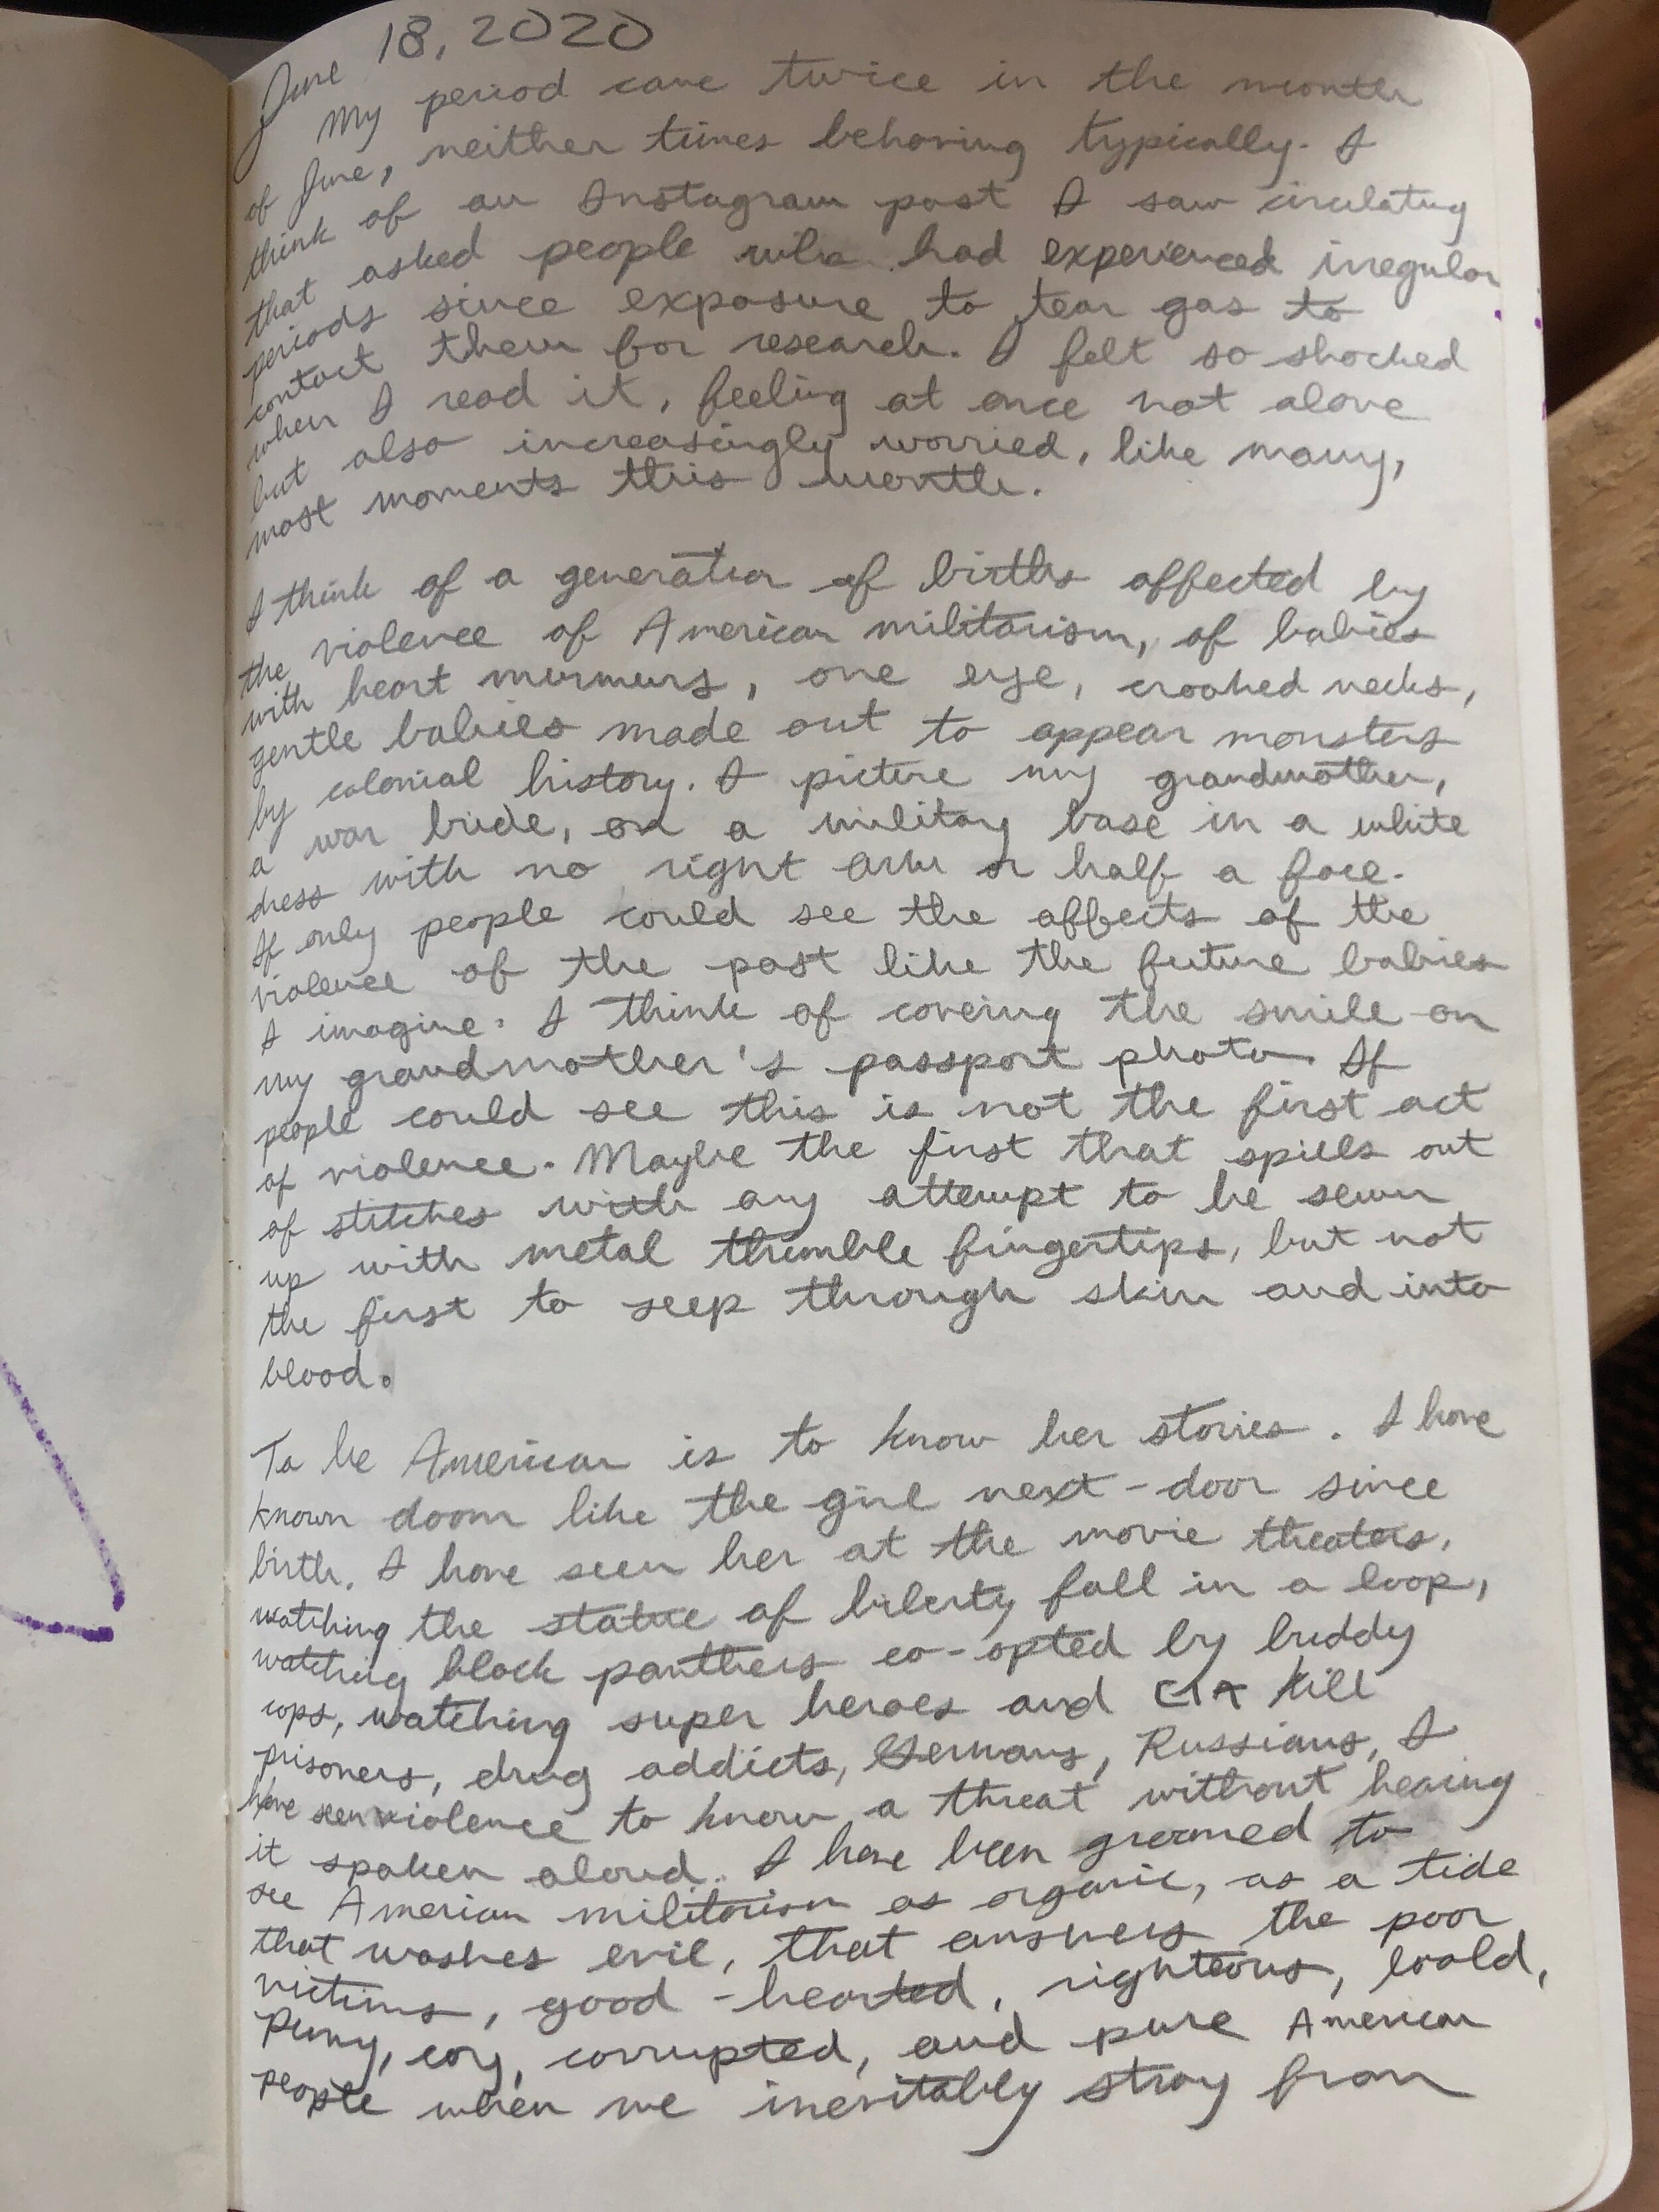 June 18, 2020
My period came twice in the month
of June, neither times behaving typically. I
think of an Instagram post I saw circulating
that asked people who had experienced irregular
periods since exposure to tear gas to
contact them for research. I felt so shocked
when I read it, feeling at once not alone
but also increasingly worried, like many,
most moments this month.
I think of a generation of births affected by
the violence of American militarism, of babies
with heart murmurs, one eye, crooked necks,
gentle babies made out to appear monsters
by colonial history. I picture my grandmother,
a war bride, on a military base in a white
dress with no right arm or half a face.
If only people could see the affects of the
violence of the past like the future babies
I imagine. I think of covering the smile on
my grandmother's passport photo. If
people could see this is not the first act
of violence. Maybe the first that spills out
of stitches with any attempt to be sewn
up with metal thimble fingertips, but not
the first to seep through skin and into
blood.
To be American is to know her stories. I have
known doom like the girl next-door since
birth. I have seen her at the movie theaters,
watching the statue of liberty fall in a loop,
watching black panthers co-opted by buddy
cops, watching super heroes and CIA kill
prisoners, drug addicts, Germans, Russians, I
have seen violence to know a threat without hearing
it spoken aloud. I have been groomed to
see American militarism as organic, as a tide
that washes evil, that answers the poor
victims, good-hearted, righteous,
Puny, corrupted, and pure American
People when we inevitably stray from